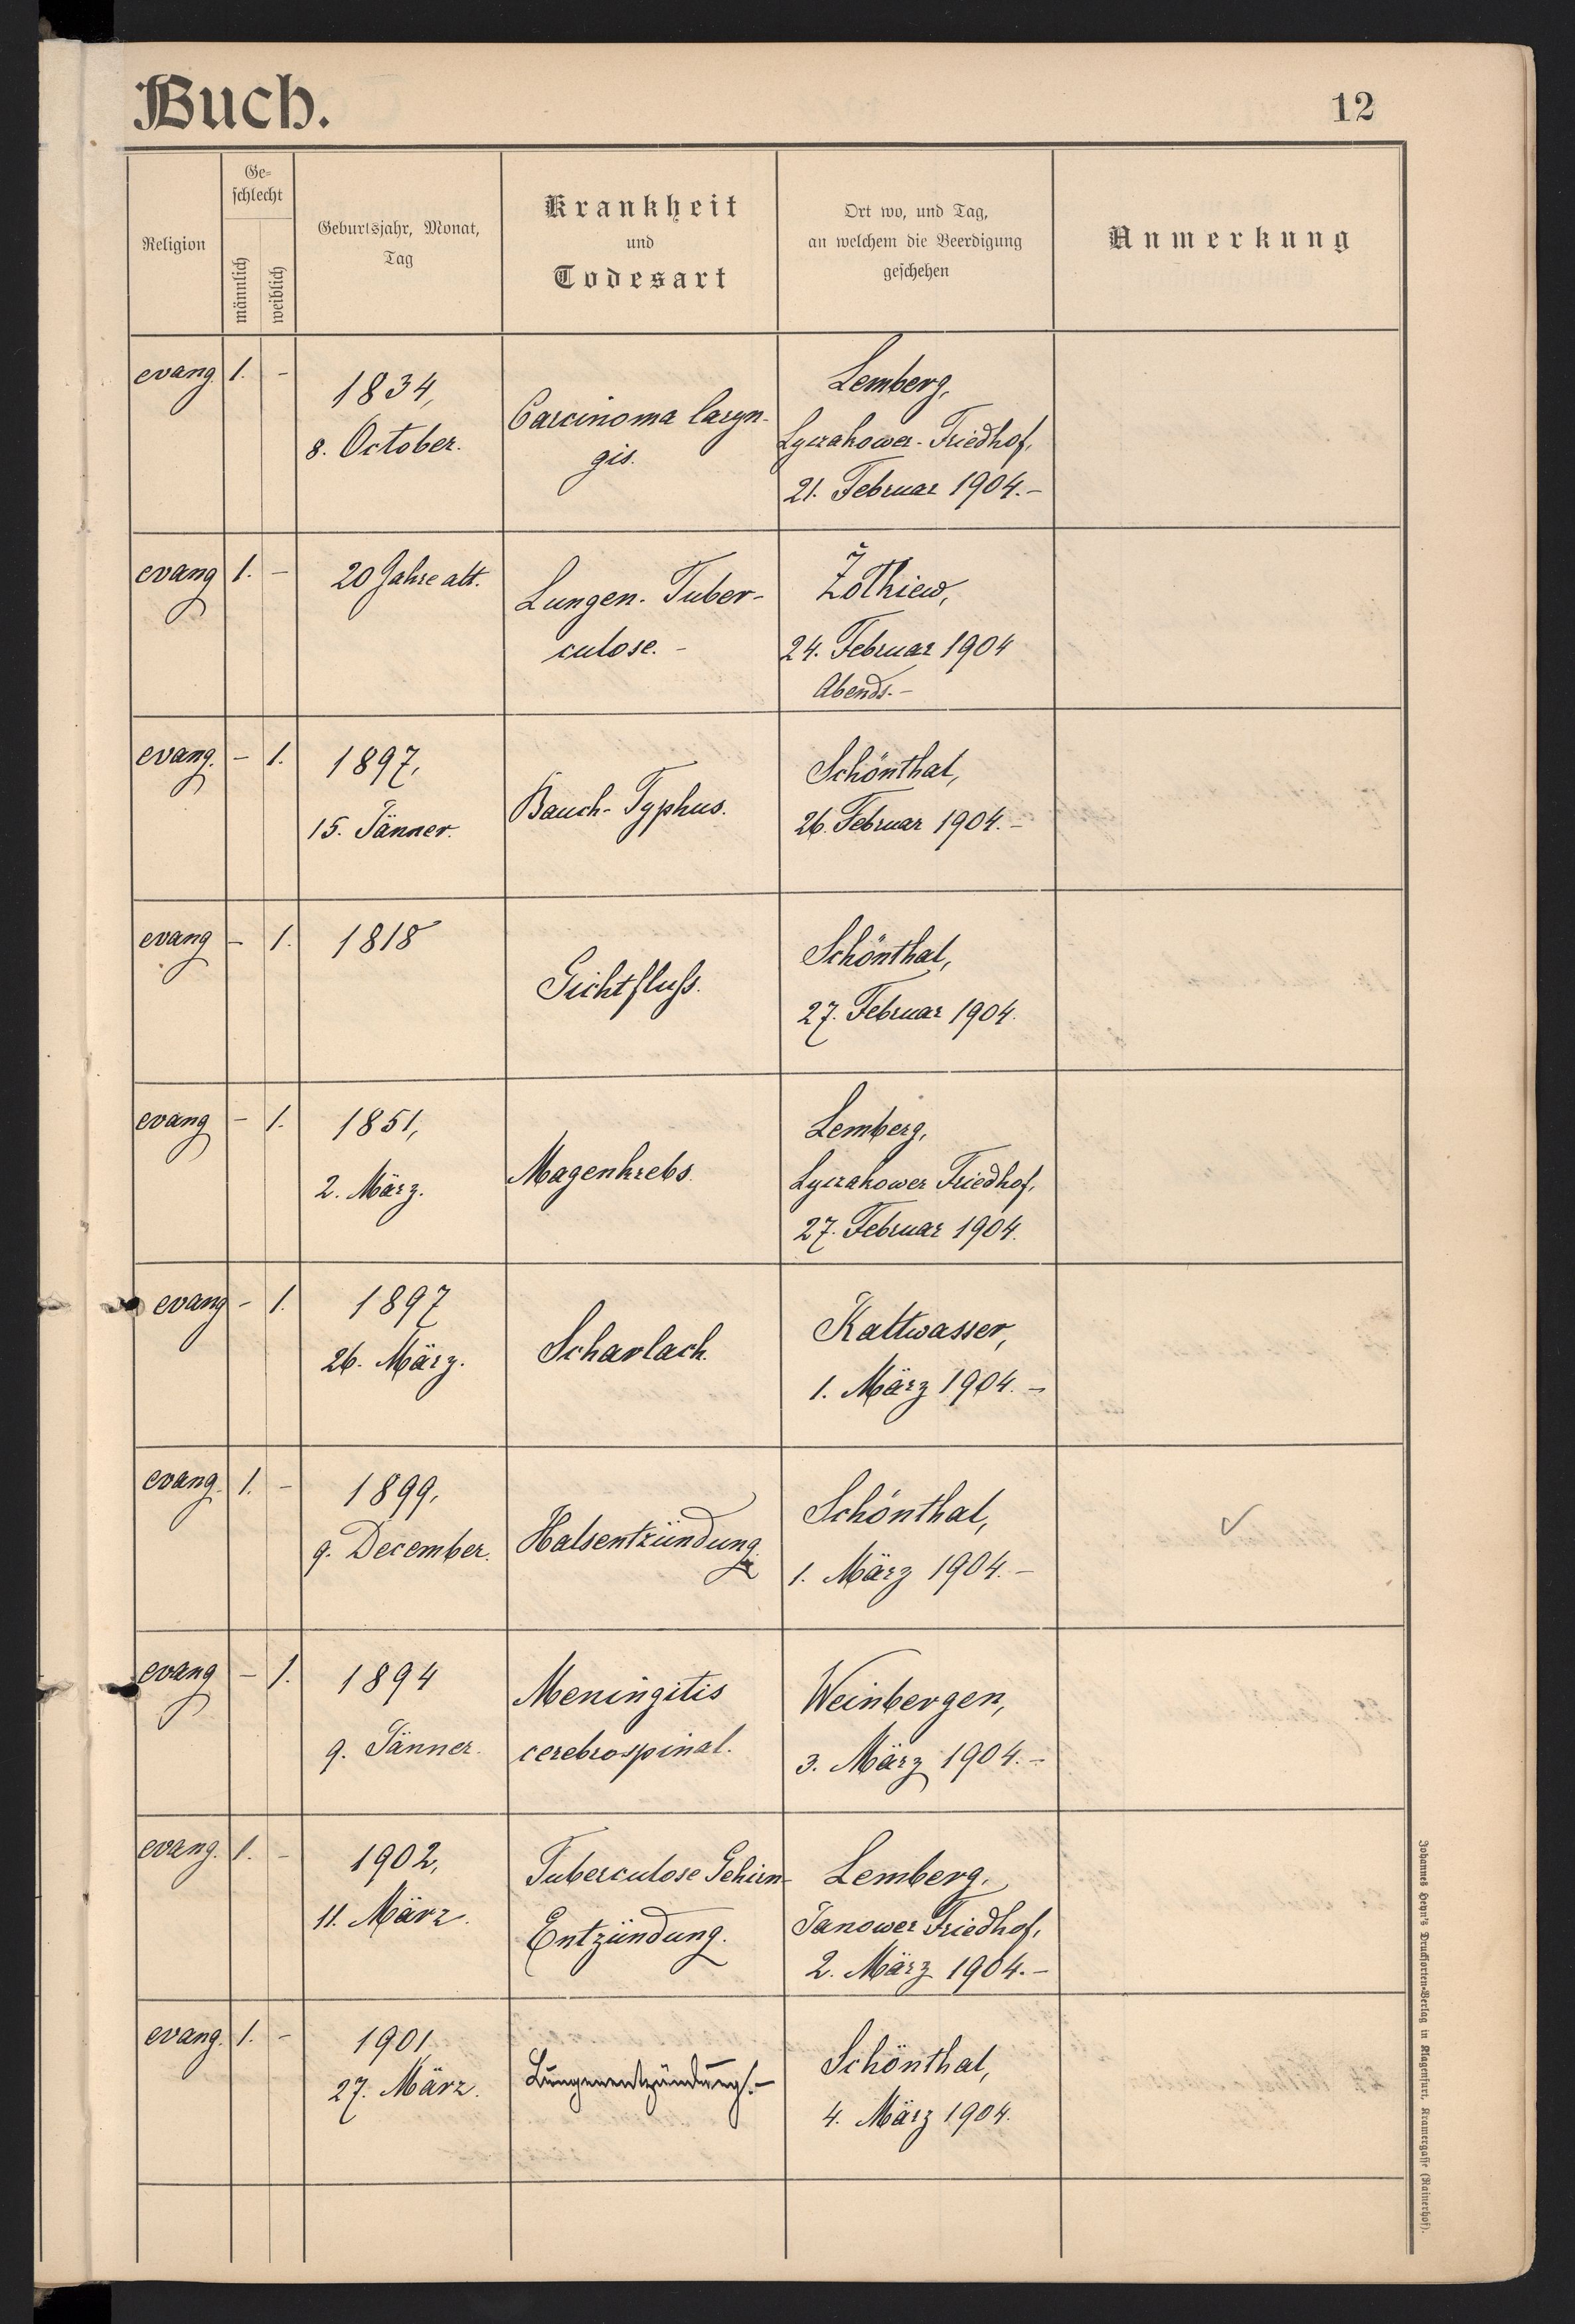 Buch.
12
Religion
Ge=
schlecht
männlich
weiblich
Geburtsjahr, Monat,
Tag
Krankheit
und
Todesart
Ort wo, und Tag,
an welchem die Beerdigung
geschehen
Anmerkung
evang. 1. -
1834,
8. October.
Carcinoma laryn-
gis.
Lemberg,
Lyczakower-Friedhof,
21. Februar 1904.-
evang 1. -
20 Jahre alt.
Lungen-Tuber-
culose. -
Żołkiew,
24. Februar 1904
Abends.-
evang. - 1.
1897,
15. Jänner.
Bauch-Typhus.
Schönthal,
26. Februar 1904.-
evang - 1.
1818
Gichtfluß.
Schönthal,
27. Februar 1904.
evang - 1.
1851,
2. März.
Magenkrebs.
Lemberg,
Lyczakower Friedhof,
27. Februar 1904.
evang - 1.
1897
26. März.
Scharlach.
Kaltwasser,
1. März 1904. -
evang. 1. -
1899,
9. December.
Halsentzündung.
Schönthal,
1. März 1904. -
evang - 1.
1894
9. Jänner.
Meningitis
cerebrospinal.
Weinbergen,
3. März 1904. -
evang. 1. -
1902,
11. März.
Tuberculose Gehirn-
Entzündung.
Lemberg,
Janower Friedhof,
2. März 1904.-
evang. 1. -
1901,
27. März.
Lungenentzündung.-
Schönthal,
4. März 1904.
Johannes Heyn's Drucksorten-Verlag in Klagenfurt, Kramergasse (Rainerhof).